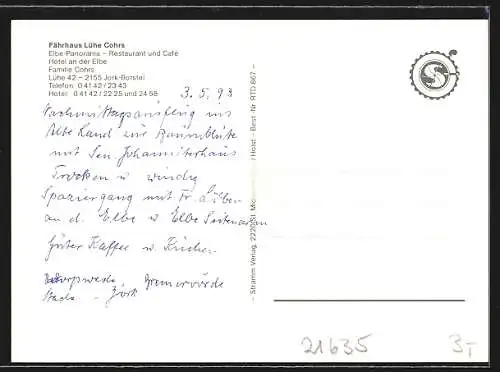 Fährhaus Lühe Cohrs
Elbe-Panorama – Restaurant und Café
Hotel an der Elbe
Familie Cohrs
Lühe 42 – 2155 Jork-Borstel
Telefon 0 41 42 / 23 43
Hotel 0 41 42 / 22 25 und 24 58
3. 5. 93
Nachmittagsausflug ins
Alte Land zur Baumblüte
mit Sen. Johanniterhaus
Trocken u windig
Spaziergang mit Fr.
an d. Elbe u Elbe Seitenarm
Guter Kaffee u. Kuchen
Bremervörde
Stade - Jork
– Stramm Verlag, 2220 St. Mic / Holst – Best-Nr. RTD 867 –
21635
3,-